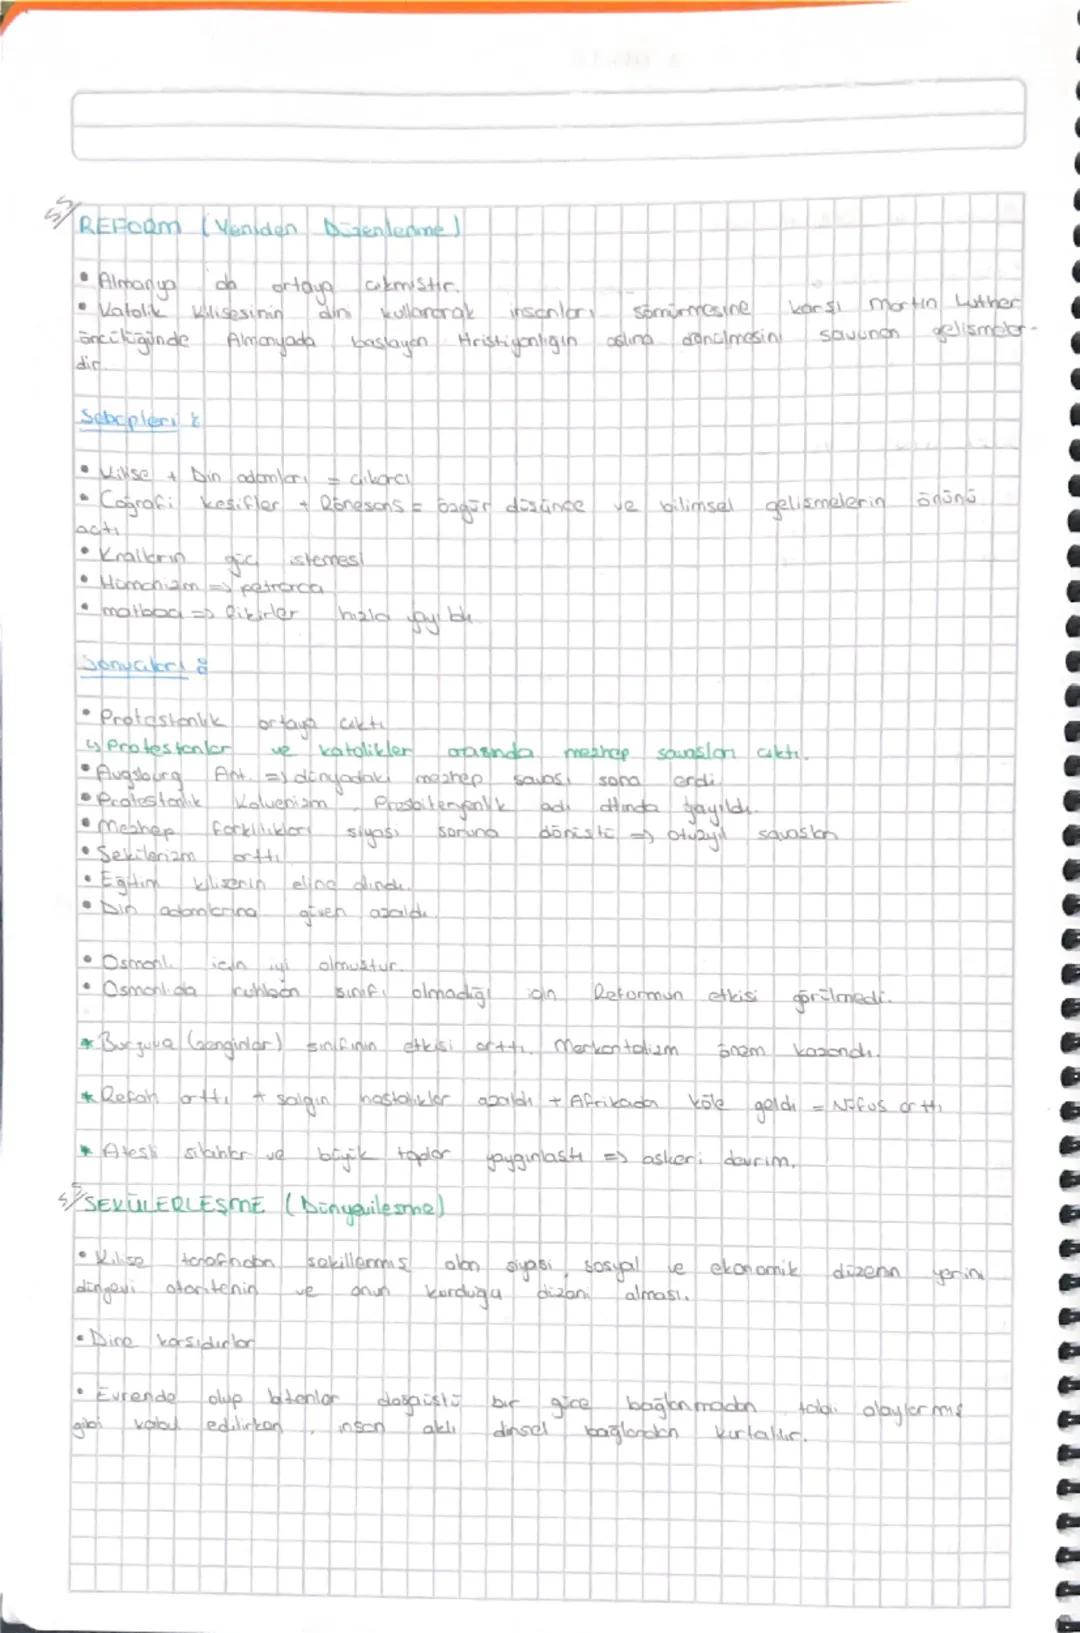 REFORM (Yeniden Düzenleme)
• Almanya da ortaya çıkmıştır.
• Katolik kilisesinin dini kullanarak insanları sömürmesine karşı Martin Luther
öncülüğünde Almanyada başlayan Hristiyanlığın aslına dönülmesini savunan gelişmeler-
dir.
Sebepleri :
• Kilise + Din adamları = çıkarcı
• Coğrafi keşifler + Rönesans = özgür düşünce ve bilimsel gelişmelerin önünü
açtı
• Kralların güç istemesi
• Hümanizm => petrarca
• matbaa => fikirler hızla yayıldı
Sonuçları :
• Protestanlık ortaya çıktı
↳ Protestanlar ve katolikler arasında mezhep savaşları çıktı.
• Augsburg Ant. => dünyadaki mezhep savaşı sona erdi
• Protestanlık Kalvenizm, Presbiteryenlik adı altında yayıldı.
• Mezhep farklılıkları siyasi soruna dönüştü => Otuzyıl savaşları
• Sekülerizm arttı
• Eğitim kilisenin eline alındı.
• Din adamlarına güven azaldı.
• Osmanlı için iyi olmuştur.
• Osmanlıda ruhban sınıfı olmadığı için Reformun etkisi görülmedi.
* Burjuva (zenginler) sınıfının etkisi arttı. Merkantalizm önem kazandı.
* Refah arttı + salgın hastalıklar azaldı + Afrikadan köle geldi = Nüfus arttı
* Ateşli silahlar ve büyük toplar yaygınlaştı => askeri devrim.
SEKÜLERLEŞME (Dünyevileşme)
• Kilise tarafından şekillenmiş olan siyasi, sosyal ve ekonomik düzenin yerini
dünyevi otoritenin ve onun kurduğu düzeni alması.
• Dine karşıdırlar
• Evrende olup bitenler doğaüstü bir güce bağlanmadan, tabi olaylarmış
gibi kabul edilirken, insan aklı dinsel bağlardan kurtulur.